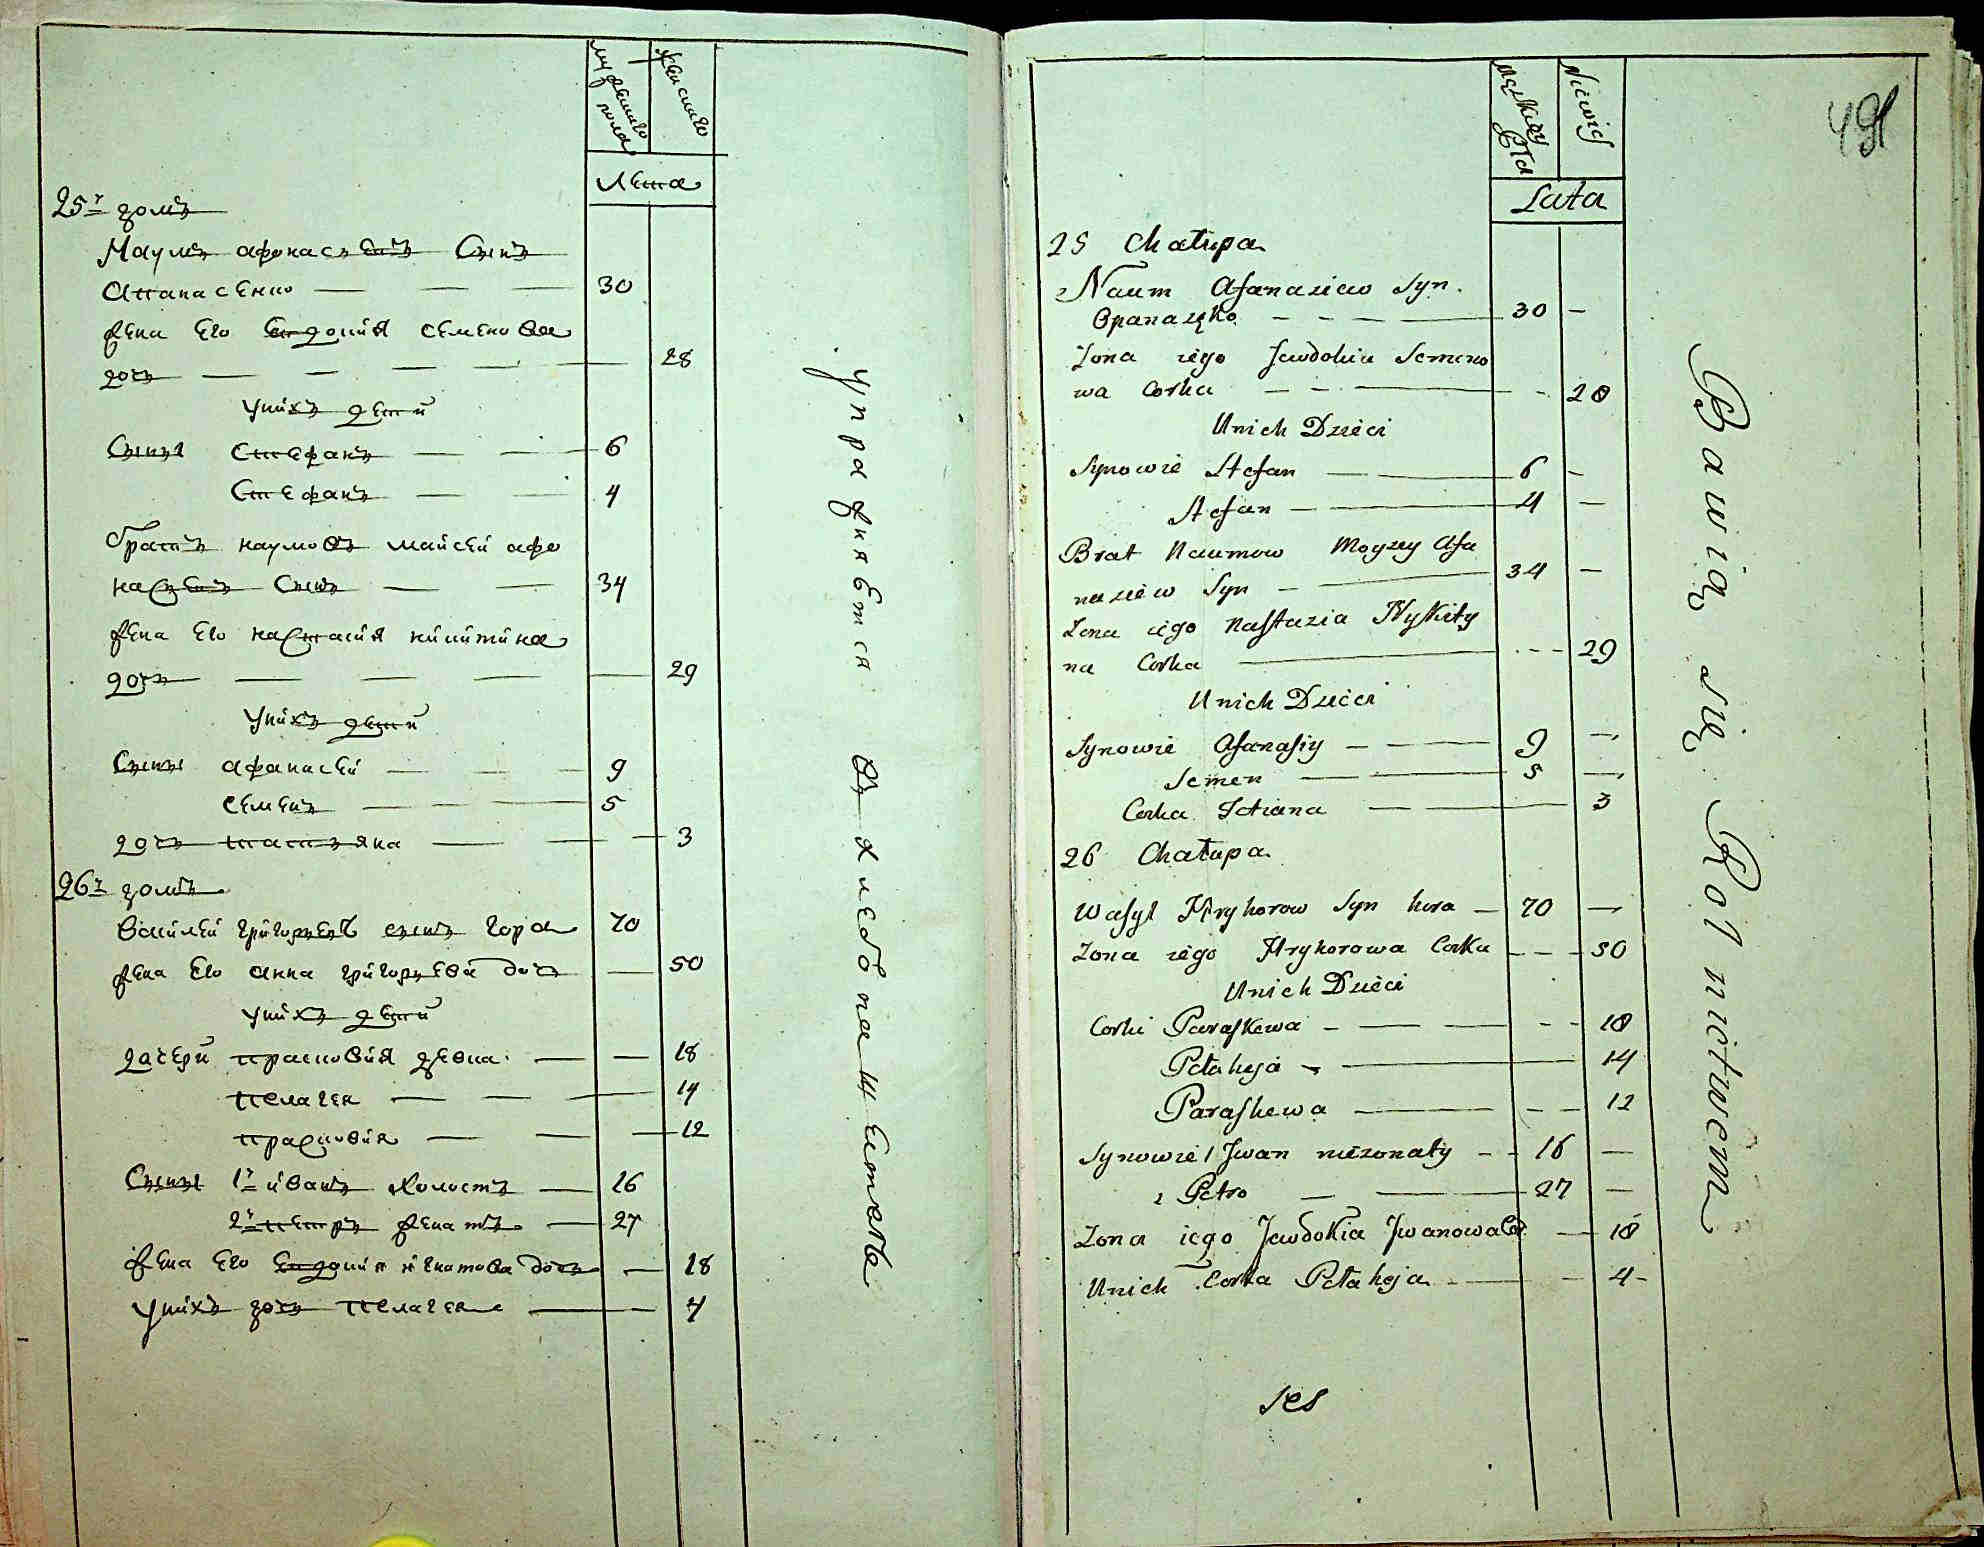 мужеска пола
женска
Лета
25й домъ
Наумъ афонасьевъ Сынъ
Апанасенко — — — 30
жена его Евдокия семенова
дочь — — — — — 28
у них дети
Сыны Стефанъ — — 6
Стефанъ — — 4
братъ наумовъ майсей афо
насьевъ Сынъ — — 34
жена его настасия никитина
дочь — — — — 29
у них дети
Сыны афанасей — — 9
семенъ — — 5
дочь татьяна — — 3
26й домъ
василей григорьевъ сынъ гора 70
жена его анна григорьева дочь — 50
у них дети
дочери прасковия девка — — 18
пелагея — — — 14
прасковия — — — 12
Сыны 1й иванъ холостъ — 16
2й петръ женатъ — 27
жена его Евдокия игнатова дочь — 18
у них дочь пелагея — 4
упражняется въ хлебопашестве
Męzkiey Płci
Niewie
Lata
491
25 Chałupa
Naum Afanasiew Syn
Opanaszko — — — 30 —
Zona iego Jewdokia Semeno
wa Corka — — — - 28
Unich Dzieci
Synowie Stefan — — 6 —
Stefan — 4 —
Brat Naumow Moyzey Afa
nasiew Syn — — 34 —
Zona iego Nastazia Mykity
na Corka — - - - 29
Unich Dzieci
Synowie Afanasiy — — 9 —
Semen — — 5 —
Corka Tatiana — — 3
26 Chałupa
Wasyl Hryhorow Syn hora — 70 —
Zona iego Hryhorowa Corka — - - 50
Unich Dzieci
Corki Paraskewa — — — - - 18
Pelaheja — — 14
Paraskewa — - - 12
Synowie 1 Jwan nieżonaty - - 16 —
2 Petro — — 27 —
Zona iego Jewdokia Jwanowa Cor — 18
Unich Corka Pelaheja — — 4 -
Bawią się Rolnictwem